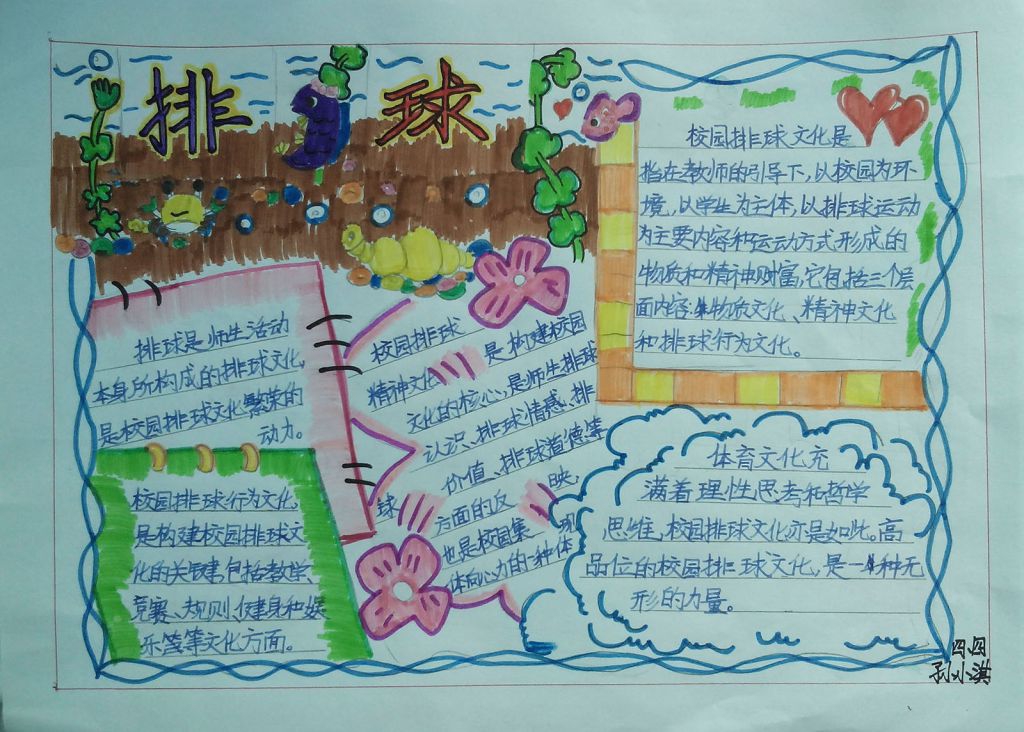 排球
校园排球文化是
指在教师的引导下,以校园为环
境,以学生为主体,以排球运动
为主要内容和运动方式形成的
物质和精神财富,它包括三个层
面内容:物质文化、精神文化
和排球行为文化。
排球是师生活动
本身所构成的排球文化,
是校园排球文化繁荣的
动力。
校园排球
精神文化是构建校园
文化的核心,是师生排球
认识、排球情感、排
球价值、排球道德等
方面的反映,
也是校园集
体向心力的一种体现
校园排球行为文化,
是构建校园排球文
化的关键,包括教学、
竞赛、规则、健身和娱
乐等等文化方面。
体育文化充
满着理性思考和哲学
思维,校园排球文化亦是如此。高
品位的校园排球文化,是一种无
形的力量。
四四
孙小淇